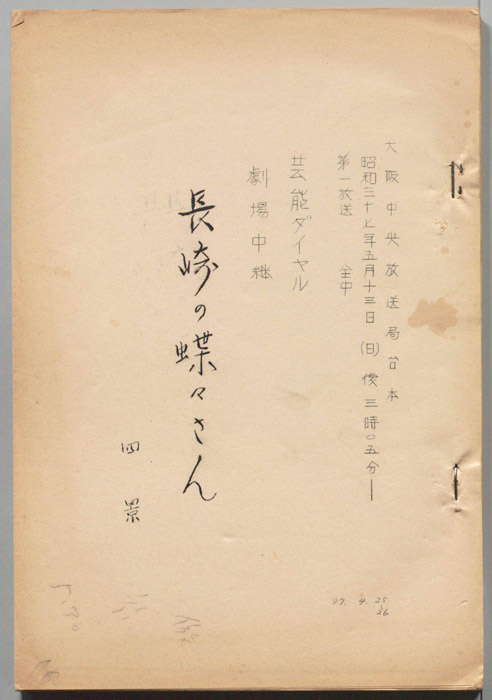 大阪中央放送局台本
昭和三十七年五月十三日(日)後三時〇五分―
第一放送 全中
芸能ダイヤル
劇場中継
長崎の蝶々さん
四景
37. 4. 25
26